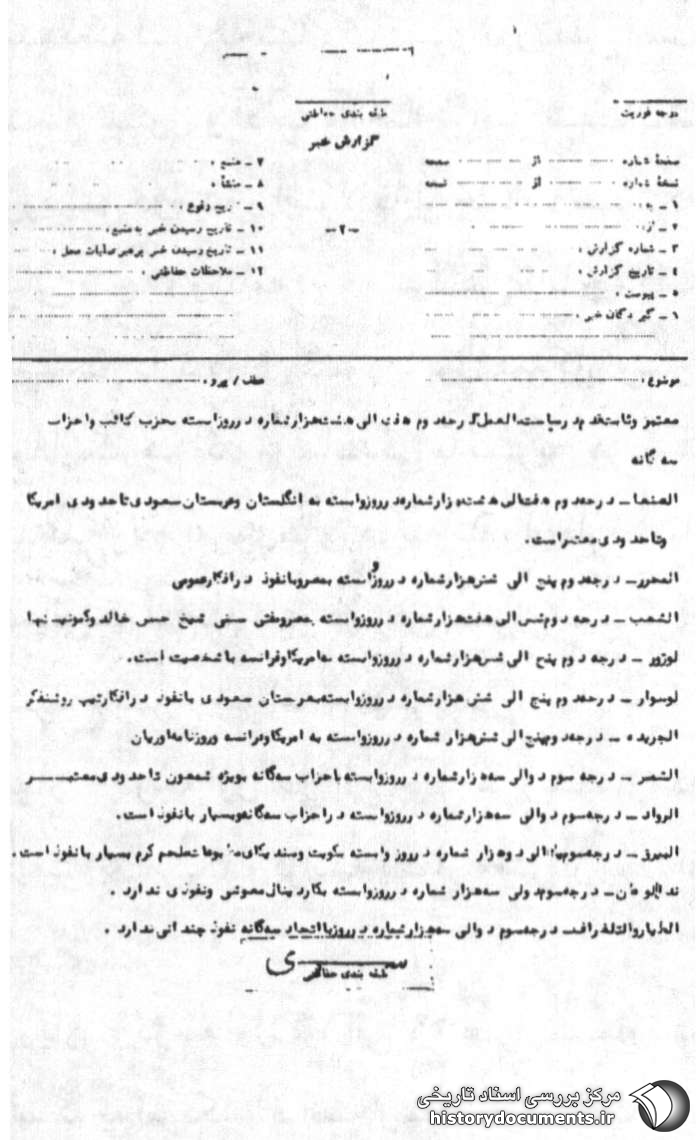 درجه فوریت
طبقه بندی حفاظتی
گزارش خبر
صفحهٔ شماره از صفحه
نسخهٔ شماره از نسخه
۱ - به :
۲ - از :
۳ - شماره گزارش :
۴ - تاریخ گزارش :
۵ - پیوست :
۶ - گیرندگان خبر :
-۲-
۷ - منبع :
۸ - منشأ :
۹ - تاریخ وقوع :
۱۰ - تاریخ رسیدن خبر به منبع :
۱۱ - تاریخ رسیدن خبر به رهبر عملیات محل :
۱۲ - ملاحظات حفاظتی :
موضوع :
عطف / پیرو :
معتبر هفت الی هشت هزار شماره در روز وابسته بحزب کتائب و احزاب
سه گانه
درجه دوم هفت الی هشت هزار شماره در روز وابسته به انگلستان و عربستان سعودی تا حدودی امریکا
و تا حدودی معتبر است .
المحرر - درجه دوم پنج الی شش هزار شماره در روز وابسته بمصر و با نفوذ در افکار عمومی
الشعب - درجه دوم شش الی هفت هزار شماره در روز وابسته بمصر و مفتی سنی شیخ حسن خالد و کمونیستها
لوژور - درجه دوم پنج الی شش هزار شماره در روز وابسته به امریکا و فرانسه با شخصیت است .
لوسوار - درجه دوم پنج الی شش هزار شماره در روز وابسته بعربستان سعودی با نفوذ در افکار تیپ روشنفکر
الجریده - درجه دوم پنج الی شش هزار شماره در روز وابسته به امریکا و فرانسه و روزنامه اوریان
درجه سوم دو الی سه هزار شماره در روز وابسته با احزاب سه گانه بویژه شمعون تا حدودی معتبر
الرواد - درجه سوم دو الی سه هزار شماره در روز وابسته در احزاب سه گانه و بسیار با نفوذ است .
البیرق - درجه سوم الی دو هزار شماره در روز وابسته بکویت و ملحم کرم بسیار با نفوذ است .
درجه سوم سه هزار شماره در روز وابسته بکاردینال معوشی و نفوذی ندارد .
درجه سوم دو الی سه هزار شماره در روز با اتحاد سه گانه نفوذ چندانی ندارد .
سری
طبقه بندی حفاظتی
مرکز بررسی اسناد تاریخی
historydocuments.ir